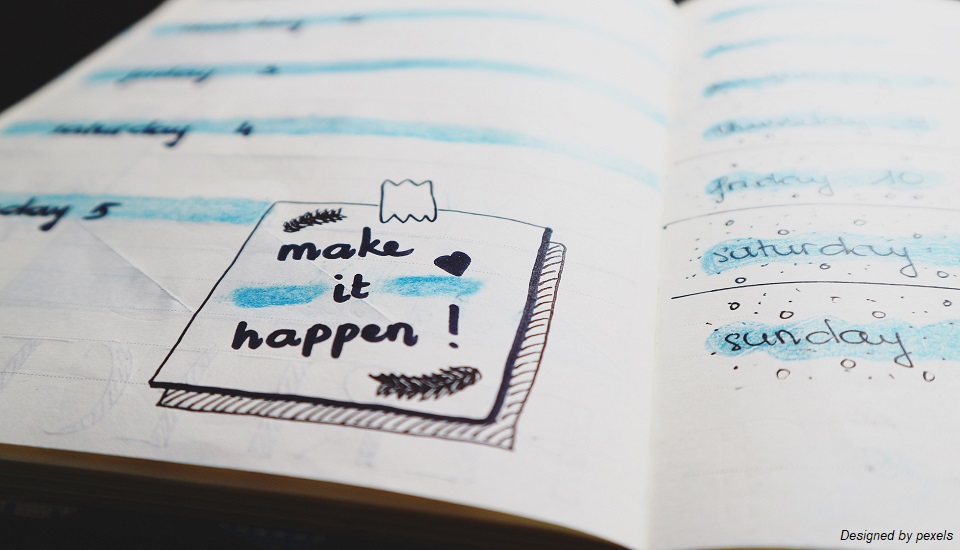 friday 3
saturday 4
day 5
make
it
happen !
friday 10
saturday
sunday
Designed by pexels